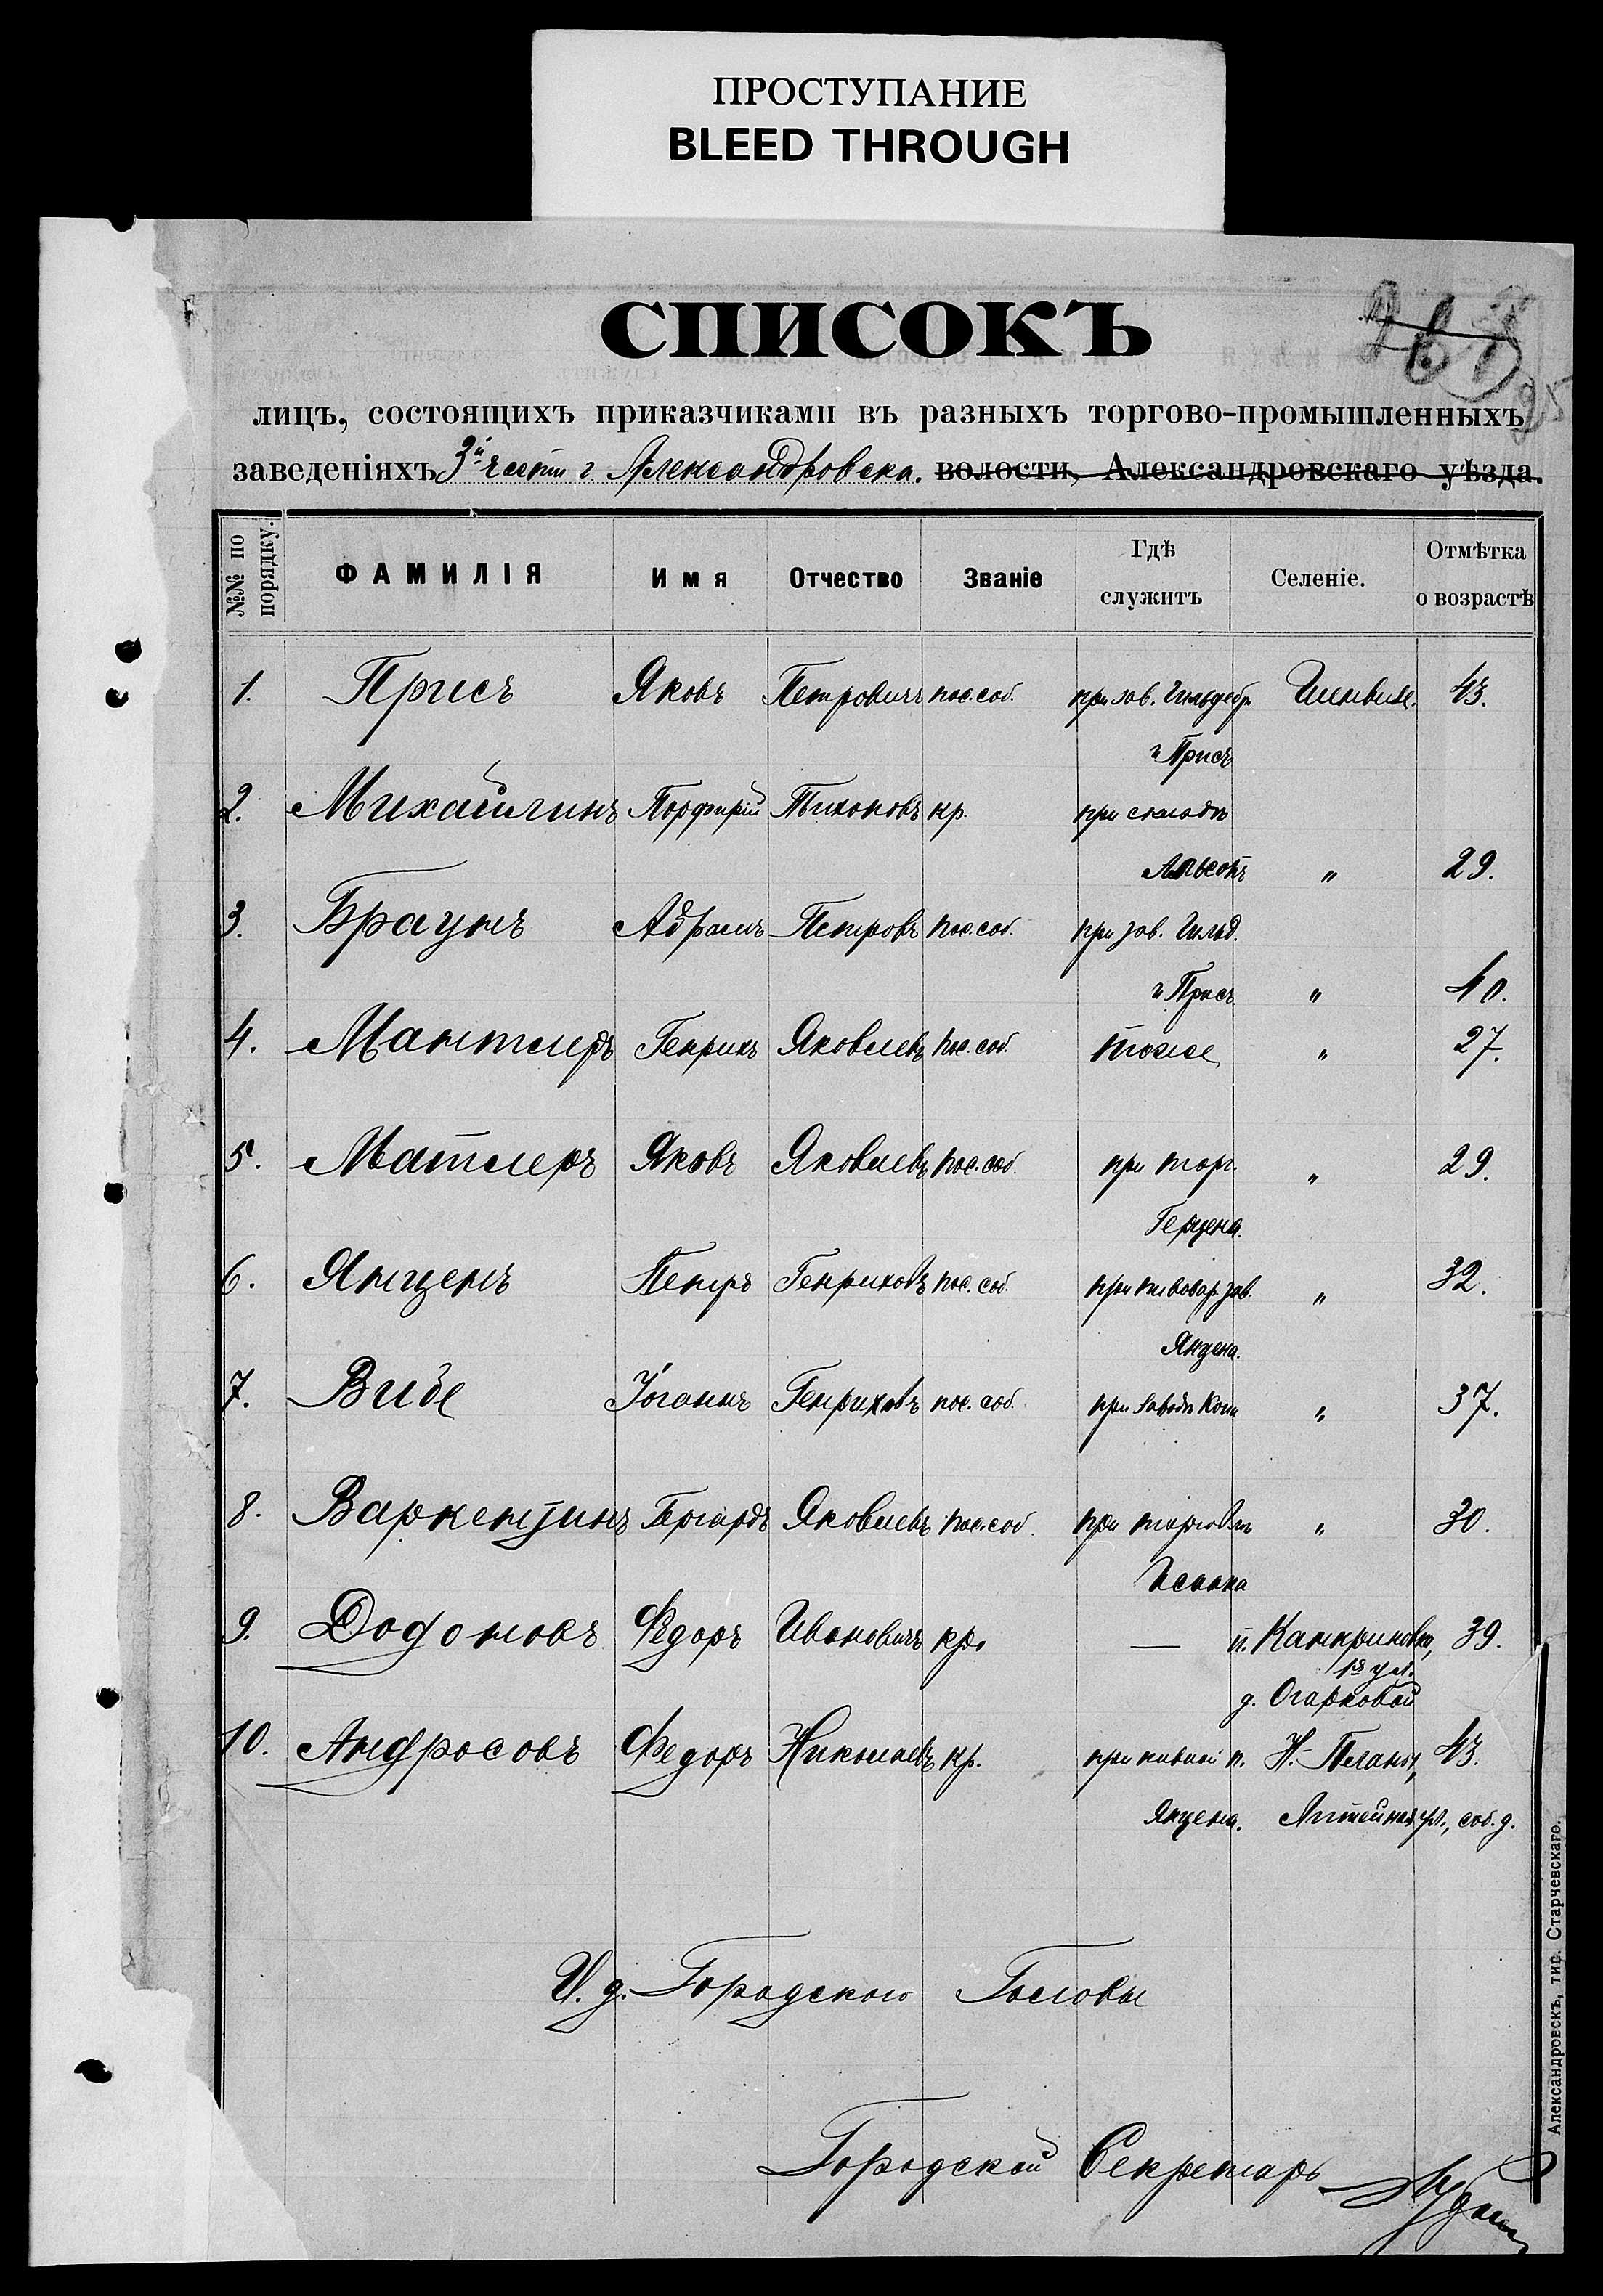 ПРОСТУПАНИЕ
BLEED THROUGH
СПИСОКЪ
25
лицъ, состоящихъ приказчиками въ разныхъ торгово-промышленныхъ
заведеніяхъ 3й части г. Александровска. волости, Александровскаго уѣзда.
№№ по порядку. ФАМИЛІЯ Имя Отчество Званіе Гдѣ служитъ Селеніе. Отмѣтка о возрастѣ
1. Присъ Яковъ Петровичъ пос. соб. при зав. Гильдебр. Шенвизе. 43.
и Присъ
2. Михайлинъ Порфирій Тихоновъ кр. при складѣ
„ 29.
3. Браунъ Абрамъ Петровъ пос. соб. при зав. Гильд.
и Присъ „ 40.
4. Мантлеръ Генрихъ Яковлевъ пос. соб. тоже „ 27.
5. Матлеръ Яковъ Яковлевъ пос. соб. при торг. „ 29.
Герцена.
6. Янценъ Петръ Генриховъ пос. соб. при пивовар. зав. „ 32.
Янцена.
7. Вибе Іоганнъ Генриховъ пос. соб. при заводѣ Копп „ 37.
8. Варкентинъ Гергардъ Яковлевъ пос. соб. при торговлѣ „ 30.
Исаака
9. Додоновъ Федоръ Ивановичъ кр. — п. Канкриновка, 39.
1я ул.
д. Огарковой
10. Андросовъ Федоръ Николаевъ кр. при пивной п. Н.-Планы, 43.
Янцена. ул., соб. д.
И. д. Городского Головы
Городской Секретарь
Александровскъ, тип. Старчевскаго.